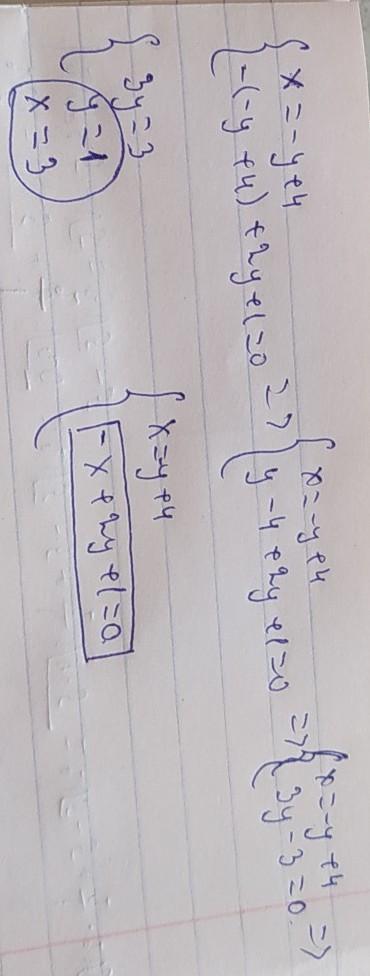 { x = -y + 4
{ -(-y + 4) + 2y + 1 = 0 => { x = -y + 4
{ y - 4 + 2y + 1 = 0 => { x = -y + 4
{ 3y - 3 = 0. =>
{ 3y = 3
{ y = 1
x = 3
{ x = y + 4
{ -x + 2y + 1 = 0